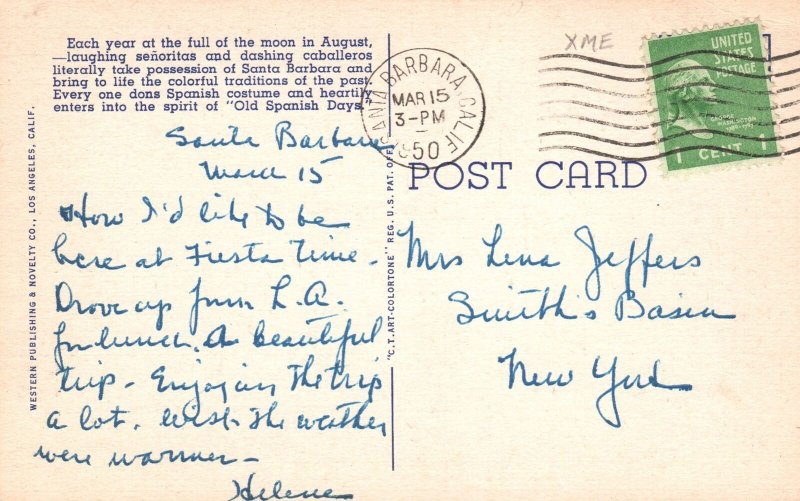 Each year at the full of the moon in August,
—laughing señoritas and dashing caballeros
literally take possession of Santa Barbara and
bring to life the colorful traditions of the past.
Every one dons Spanish costume and heartily
enters into the spirit of "Old Spanish Days."
XME
SANTA BARBARA, CALIF.
MAR 15
3-PM
1950
UNITED
STATES
POSTAGE
GEORGE
WASHINGTON
1 CENT 1
POST CARD
WESTERN PUBLISHING & NOVELTY CO., LOS ANGELES, CALIF.
"C.T. ART-COLORTONE" REG. U.S. PAT. OFF.
Santa Barbara
March 15
How I'd like to be
here at Fiesta time.
Drove up from L.A.
for lunch. A beautiful
trip - Enjoying the trip
a lot. Wish the weather
were warmer -
Helene
Mrs Lena Jeffers
Smith's Basin
New York